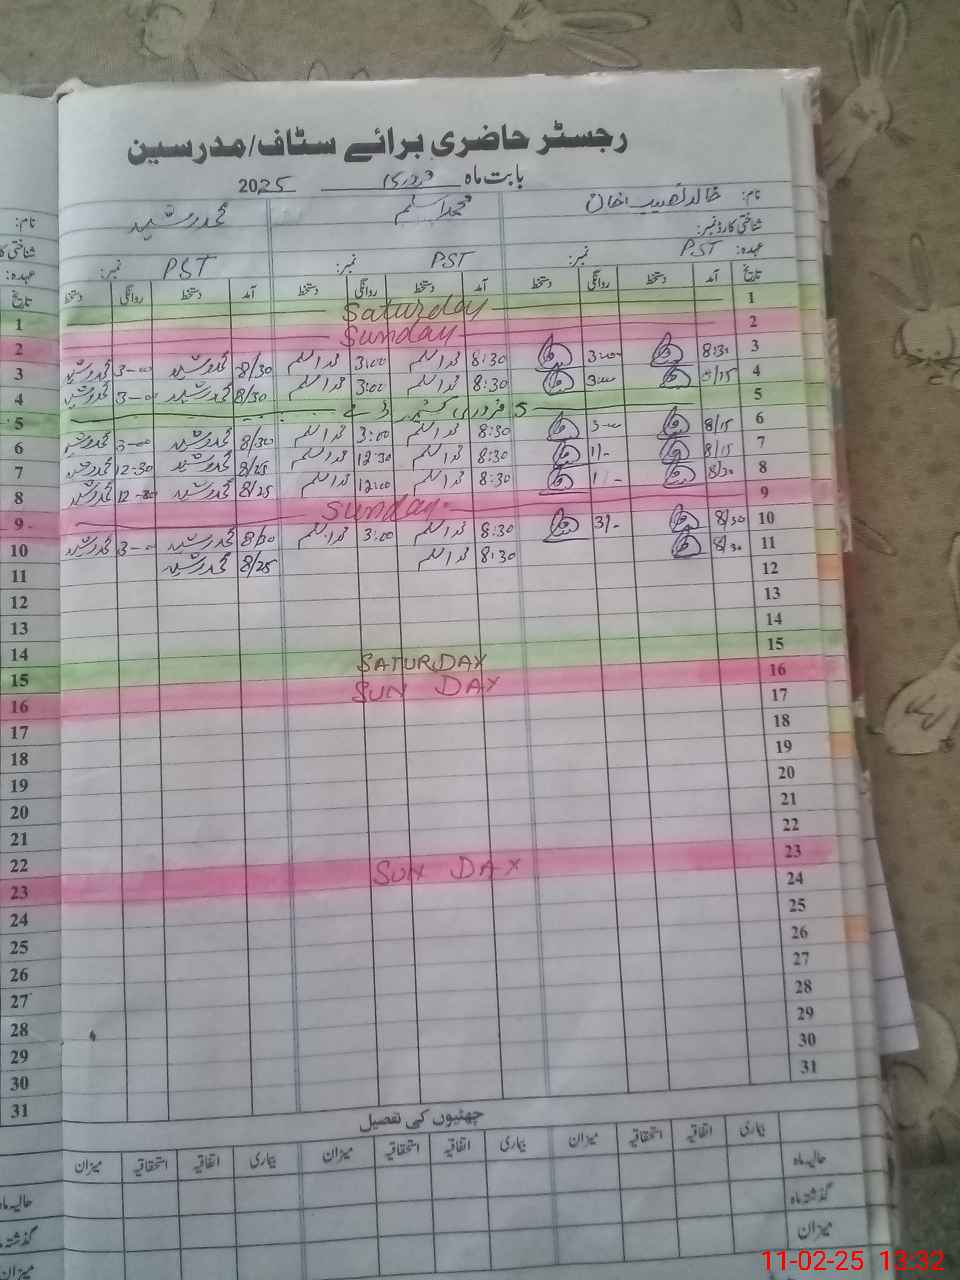 رجسٹر حاضری برائے سٹاف/مدرسین
بابت ماہ فروری 2025
نام: خالد نصیب خان محمد اسلم محمد رشید
شناختی کارڈ نمبر:
عہدہ: PST نمبر: PST نمبر: PST نمبر:
تاریخ آمد دستخط روانگی دستخط آمد دستخط روانگی دستخط آمد دستخط روانگی دستخط
1 Saturday
2 Sunday
3 8:30 3:00 8:30 محمد اسلم 3:00 محمد اسلم 8/30 محمد رشید 3-00 محمد رشید
4 8/15 3:00 8:30 محمد اسلم 3:00 محمد اسلم 8/30 محمد رشید 3-00 محمد رشید
5 5 فروری کشمیر ڈے
6 8/15 3-00 8:30 محمد اسلم 3:00 محمد اسلم 8/30 محمد رشید 3-00 محمد رشید
7 8/15 1/- 8:30 محمد اسلم 12:30 محمد اسلم 8/25 محمد رشید 12-30 محمد رشید
8 8/30 1/- 8:30 محمد اسلم 12:00 محمد اسلم 8/25 محمد رشید 12-00 محمد رشید
9 Sunday
10 8/30 3/- 8:30 محمد اسلم 3:00 محمد اسلم 8/30 محمد رشید 3-00 محمد رشید
11 8/30 8:30 محمد اسلم 8/25 محمد رشید
12
13
14
15 SATURDAY
16 SUN DAY
17
18
19
20
21
22
23 SUN DAY
24
25
26
27
28
29
30
31
چھٹیوں کی تفصیل
بیماری اتفاقیہ استحقاقیہ میزان بیماری اتفاقیہ استحقاقیہ میزان بیماری اتفاقیہ استحقاقیہ میزان
حالیہ ماہ
گذشتہ ماہ
میزان
نام:
شناختی کا
عہدہ:
تاریخ
1
2
3
4
5
6
7
8
9
10
11
12
13
14
15
16
17
18
19
20
21
22
23
24
25
26
27
28
29
30
31
حالیہ ماہ
گذشتہ
میزان
11-02-25 13:32